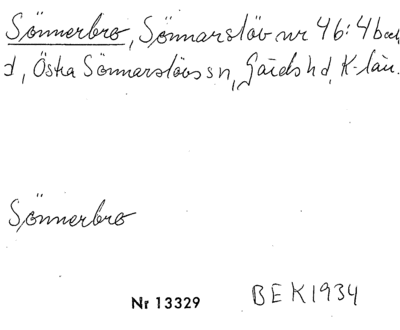 Sönnerbro, Sönnarslöv nr 4b:4b och
d, Östra Sönnarslövs sn, Gärds hd, K-län.
Sönnerbro
Nr 13329 BEK1934